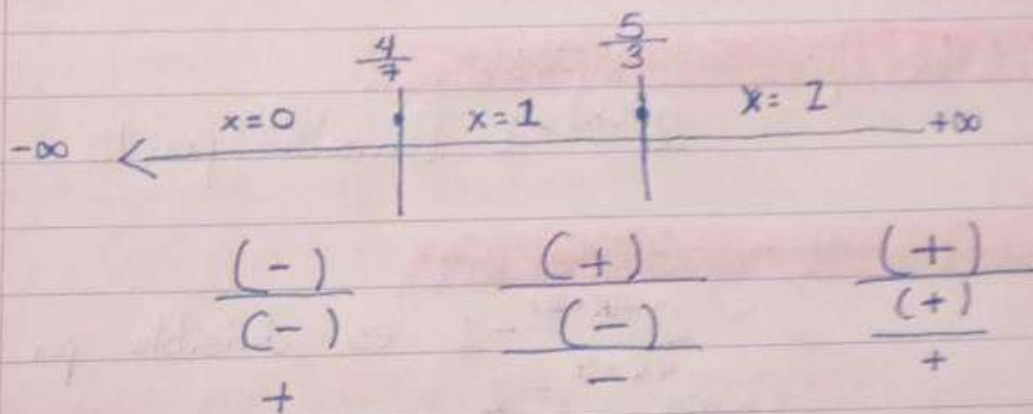 4/7 5/3
-∞ x=0 x=1 x=2 +∞
(-) (+) (+)
(-) (-) (+)
+ - +